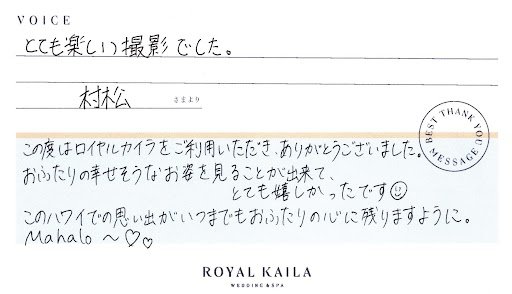 VOICE
とても楽しい撮影でした。
村松 さまより
BEST THANK YOU MESSAGE
この度はロイヤルカイラをご利用いただき、ありがとうございました。
おふたりの幸せそうなお姿を見ることが出来て、
とても嬉しかったです
このハワイでの思い出がいつまでもおふたりの心に残りますように。
Mahalo ~♡♡
ROYAL KAILA
WEDDING & SPA